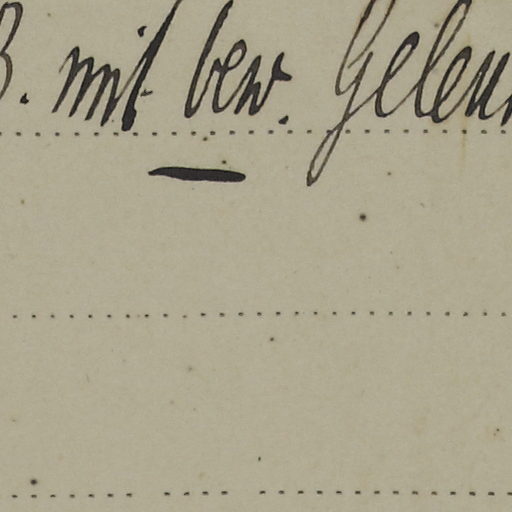 B. mit bew. Gelen